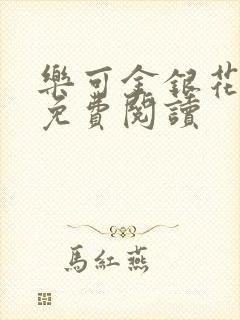 樂可金銀花
免費閱讀
馬紅燕